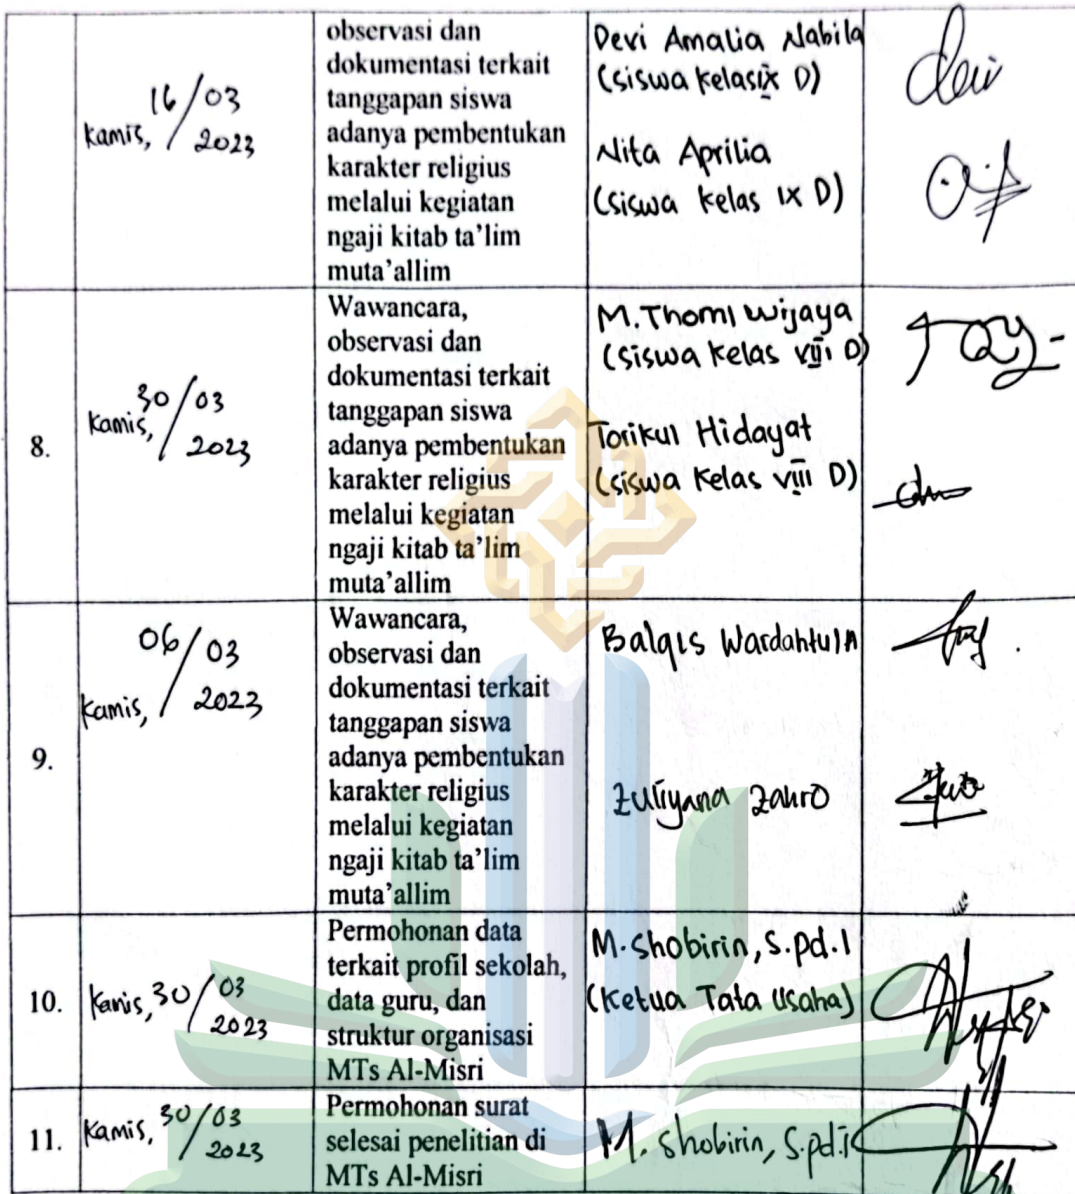 observasi dan
dokumentasi terkait
tanggapan siswa
adanya pembentukan
karakter religius
melalui kegiatan
ngaji kitab ta'lim
muta'allim
Kamis, 16/03
2023
Devi Amalia Nabila
(Siswa Kelas ix D)
Nita Aprilia
(Siswa Kelas IX D)
Devi
8.
Kamis, 30/03
2023
Wawancara,
observasi dan
dokumentasi terkait
tanggapan siswa
adanya pembentukan
karakter religius
melalui kegiatan
ngaji kitab ta'lim
muta'allim
M. Thomi Wijaya
(Siswa Kelas VIII D)
Torikul Hidayat
(Siswa Kelas VIII D)
9.
Kamis, 06/03
2023
Wawancara,
observasi dan
dokumentasi terkait
tanggapan siswa
adanya pembentukan
karakter religius
melalui kegiatan
ngaji kitab ta'lim
muta'allim
Balqis
Zuliyana Zahro
10.
Kamis, 30/03
2023
Permohonan data
terkait profil sekolah,
data guru, dan
struktur organisasi
MTs Al-Misri
M. Shobirin, S.pd.I
(Ketua Tata Usaha)
11.
Kamis, 30/03
2023
Permohonan surat
selesai penelitian di
MTs Al-Misri
M. Shobirin, S.pd.i